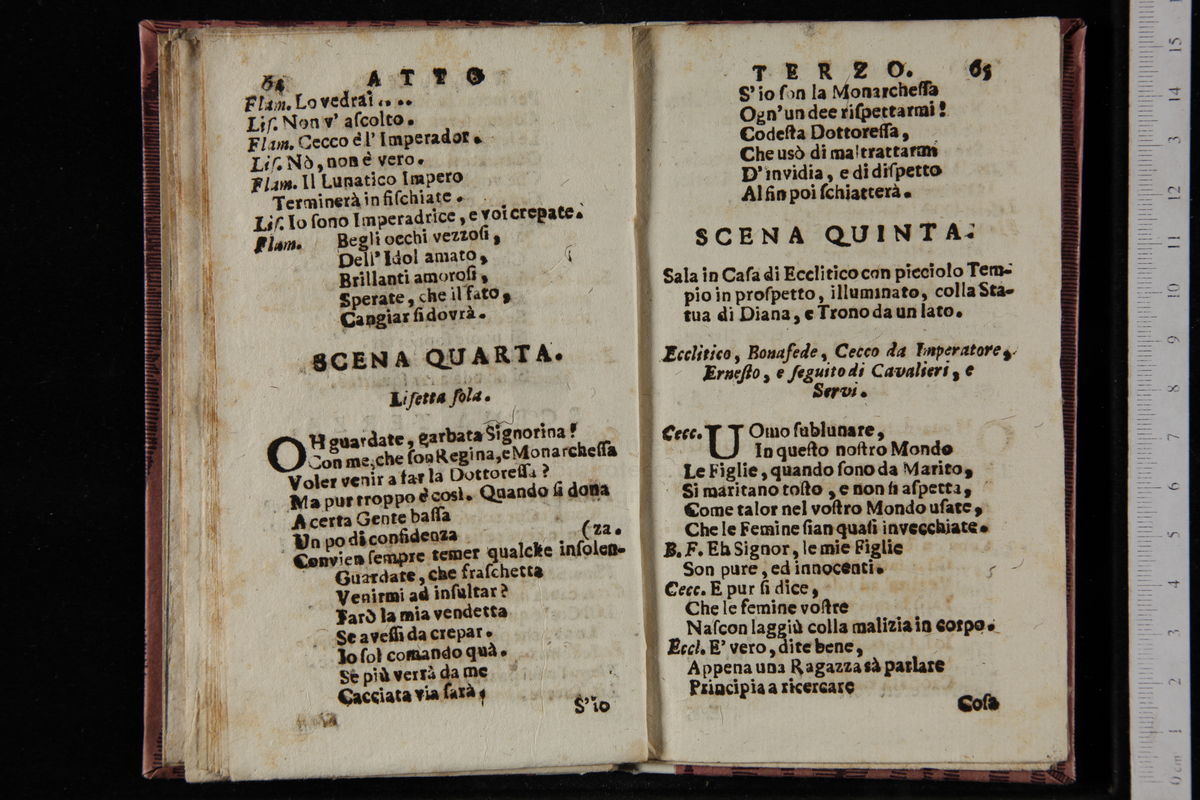 64 ATTO
Flam. Lo vedrai....
Liſ. Non v' aſcolto.
Flam. Cecco è l' Imperador.
Liſ. Nò, non è vero.
Flam. Il Lunatico Impero
Terminerà in fiſchiate.
Liſ. Io ſono Imperadrice, e voi crepate.
Flam. Begli occhi vezzoſi,
Dell' Idol amato,
Brillanti amoroſi,
Sperate, che il fato,
Cangiar ſi dovrà.
SCENA QUARTA.
Liſetta ſola.
OH guardate, garbata Signorina!
Con me, che ſon Regina, e Monarcheſſa
Voler venir a far la Dottoreſſa?
Ma pur troppo è così. Quando ſi dona
A certa Gente baſſa
Un po di confidenza (za.
Convien ſempre temer qualche inſolen-
Guardate, che fraſchetta
Venirmi ad inſultar?
Farò la mia vendetta
Se aveſſi da crepar.
Io ſol comando quà.
Se più verrà da me
Cacciata via ſarà,
S'io
TERZO. 65
S'io ſon la Monarcheſſa
Ogn'un dee riſpettarmi!
Codeſta Dottoreſſa,
Che usò di maltrattarmi
D'invidia, e di diſpetto
Al fin poi ſchiatterà.
SCENA QUINTA.
Sala in Caſa di Ecclitico con picciolo Tem-
pio in proſpetto, illuminato, colla Sta-
tua di Diana, e Trono da un lato.
Ecclitico, Bonafede, Cecco da Imperatore,
Erneſto, e ſeguito di Cavalieri, e
Servi.
Cecc. UOmo ſublunare,
In queſto noſtro Mondo
Le Figlie, quando ſono da Marito,
Si maritano toſto, e non ſi aſpetta,
Come talor nel voſtro Mondo uſate,
Che le Femine ſian quaſi invecchiate.
B. F. Eh Signor, le mie Figlie
Son pure, ed innocenti.
Cecc. E pur ſi dice,
Che le femine voſtre
Naſcon laggiù colla malizia in corpo.
Eccl. E' vero, dite bene,
Appena una Ragazza sà parlare
Principia a ricercare
Coſa
15
14
13
12
11
10
9
8
7
6
5
4
3
2
1
0 cm